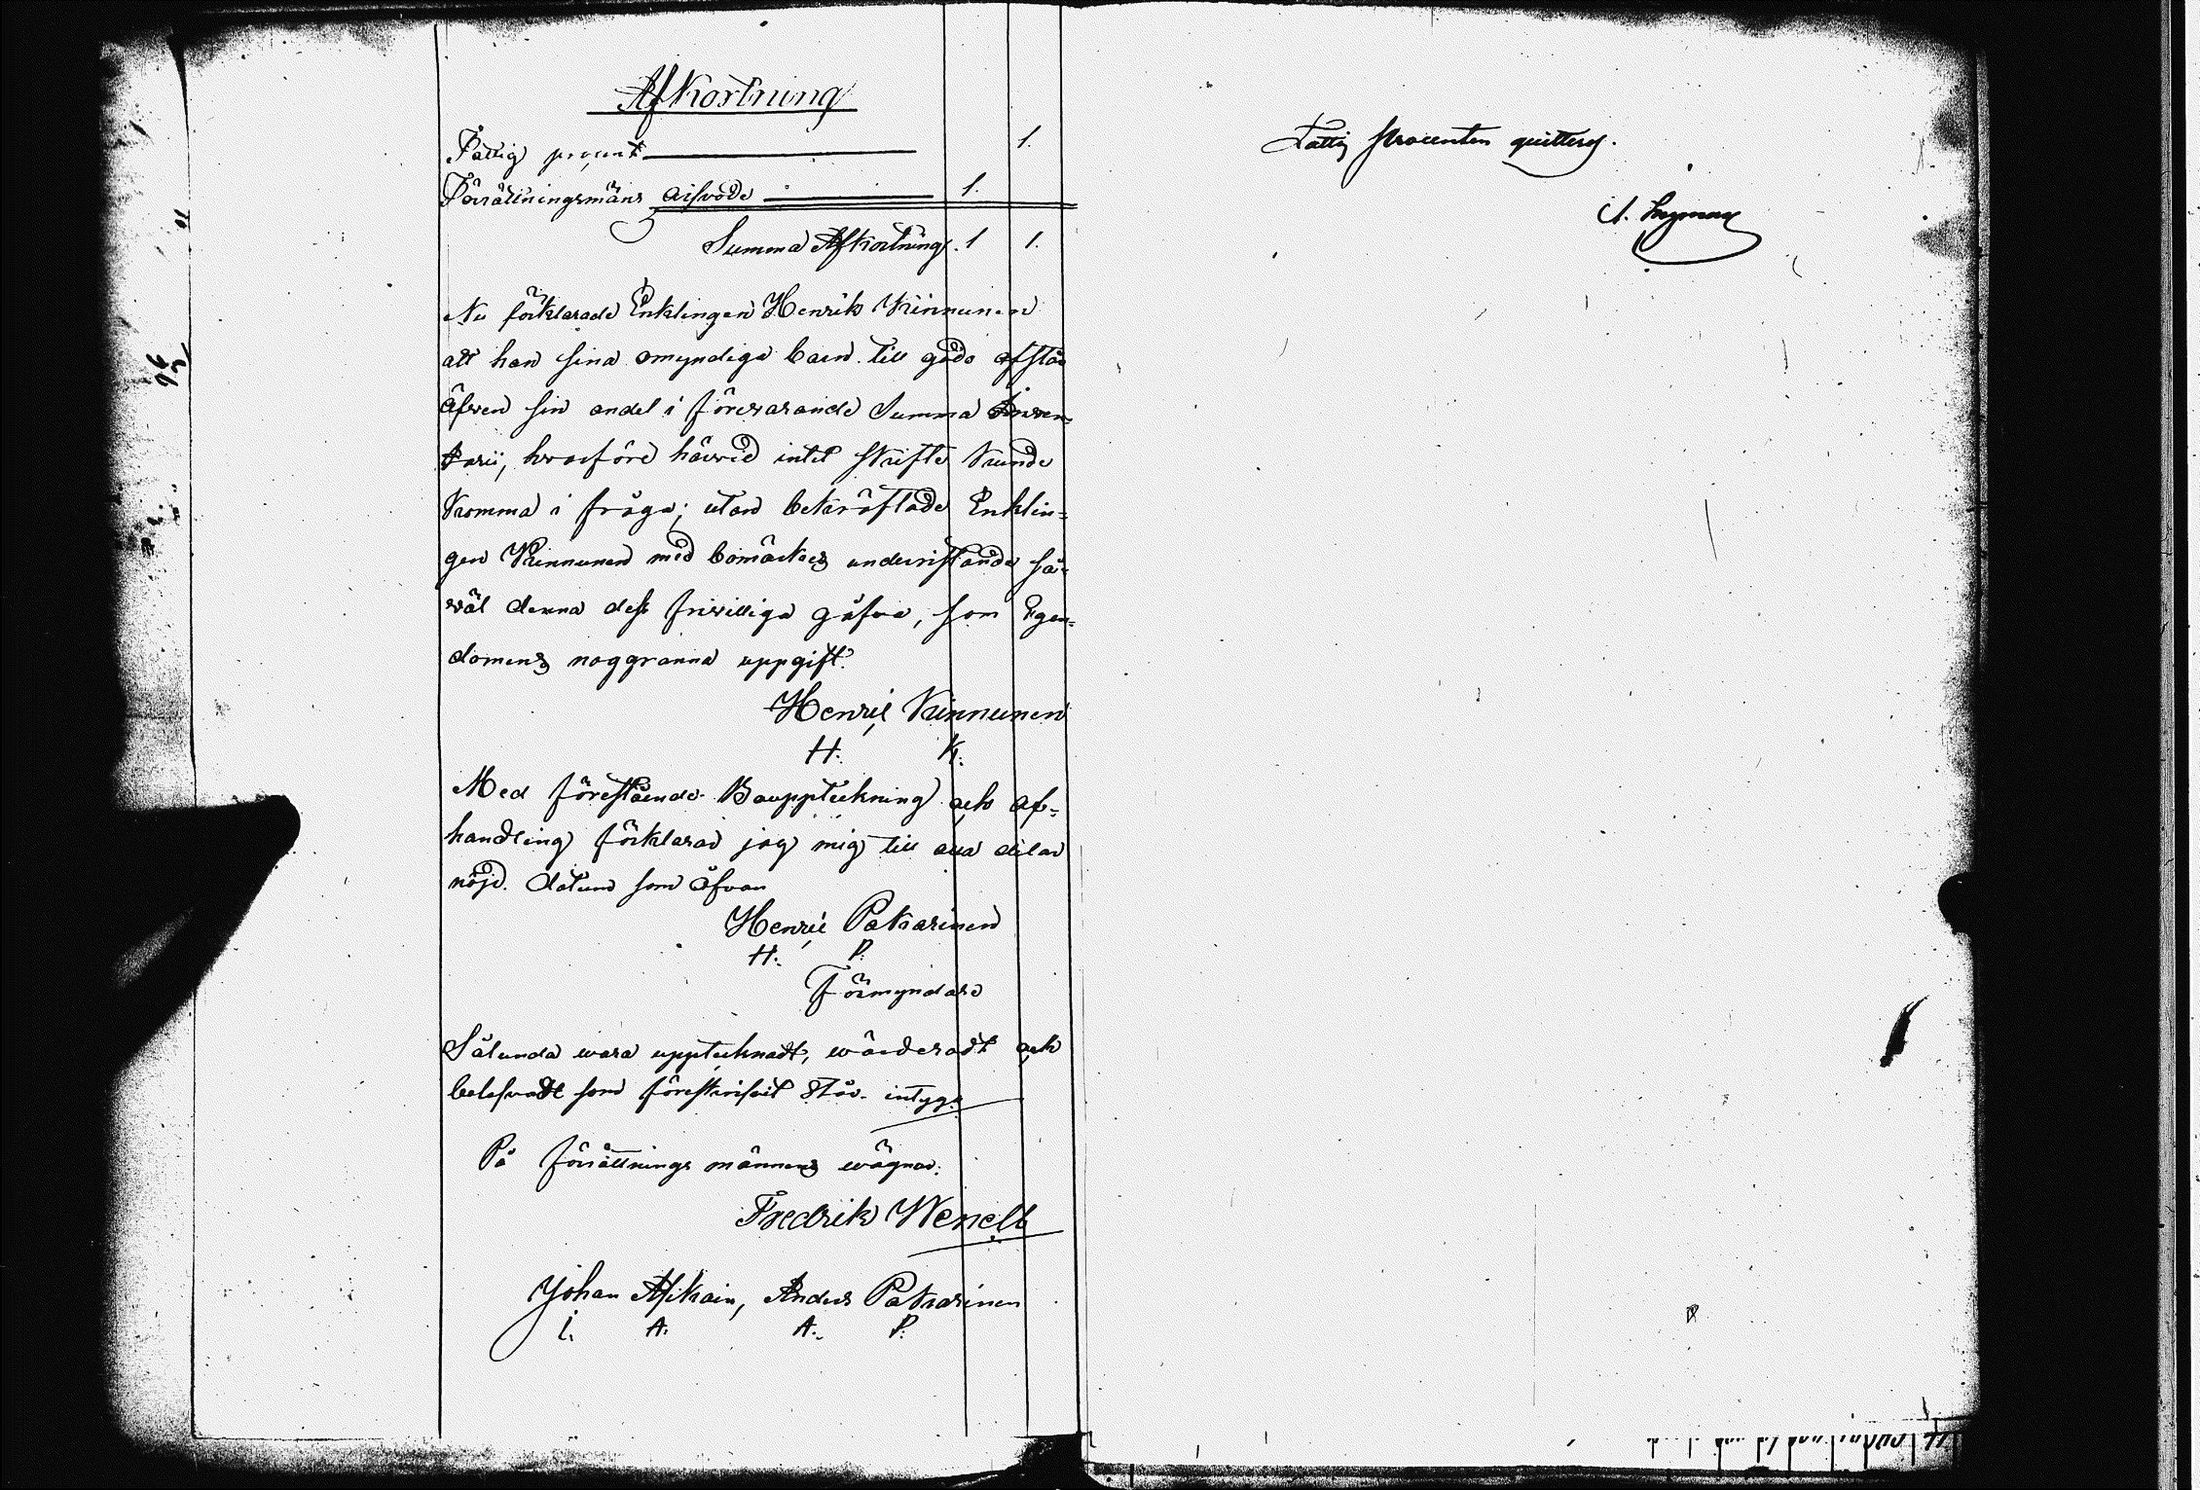 Afkortning
Fattig procent 1.
Förrättningsmäns arfvode 1.
Summa Afkortning. 1 1.
Nu förklarade Enklingen Henrik Kinnunen
att han sina omyndiga barn till godo afstår
äfven sin andel i förevarande Summa Inven-
tarii, hvarföre härvid intet skifte kunde
komma i fråga; utan bekräftade Enklin=
gen Kinnunen med bomärkes underritande så-
väl denna dess frivilliga gåfva, som Egen-
domens noggranna uppgift.
Henric Kinnunen
H. K.
Med förestående Bouppteckning och af-
handling förklarar jag mig till alla delar
nöjd. datum som ofvan
Henric Pakarinen
H. P.
Förmyndare
Sålunda vara upptecknadt, värderadt och
belefvadt som föreskrifvit står. intyga
På förrättnings männens vägnar.
Fredrik Wenell
Johan Asikain, Anders Pakarinen
I. A. A. P.
Fattig procenten quitteras.